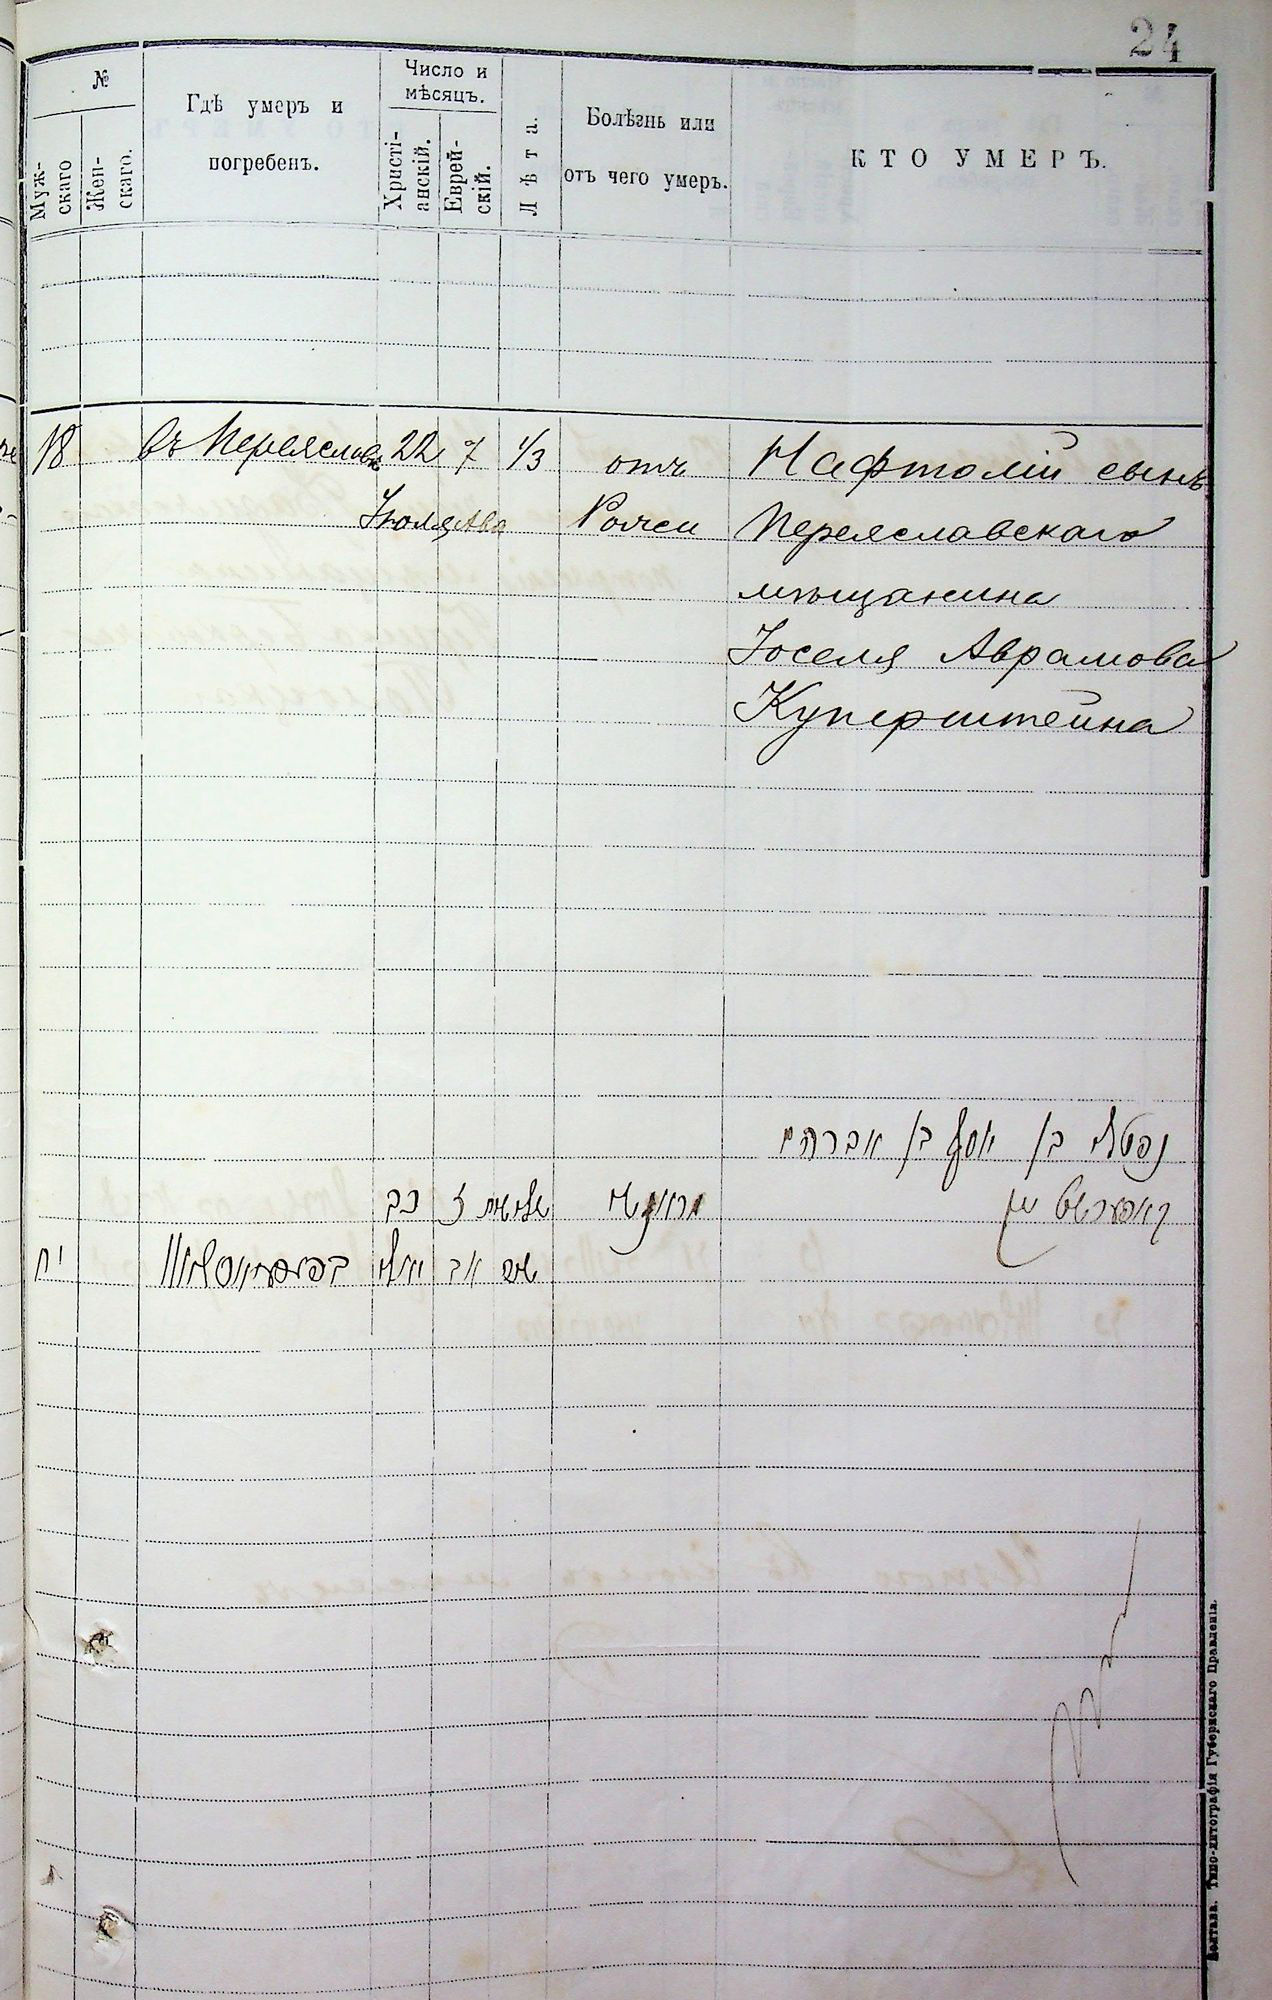 24
№
Муж-
скаго
Жен-
скаго.
Гдѣ умеръ и
погребенъ.
Число и
мѣсяцъ.
Христі-
анскій.
Еврей-
скій.
Лѣта.
Болѣзнь или
отъ чего умеръ.
КТО УМЕРЪ.
18 въ Переяславѣ 22 7 1/3 отъ Нафтолій сынъ
Іюля Ава Рожи Переяславскаго
мѣщанина
Іоселя Аврамова
Куперштейна
נפטלי בן יוסף בן אברהם
קופערשטיין
כב ז שלישית
יח יולי אב שנה
Полтава. Типо-литографія Губернскаго Правленія.